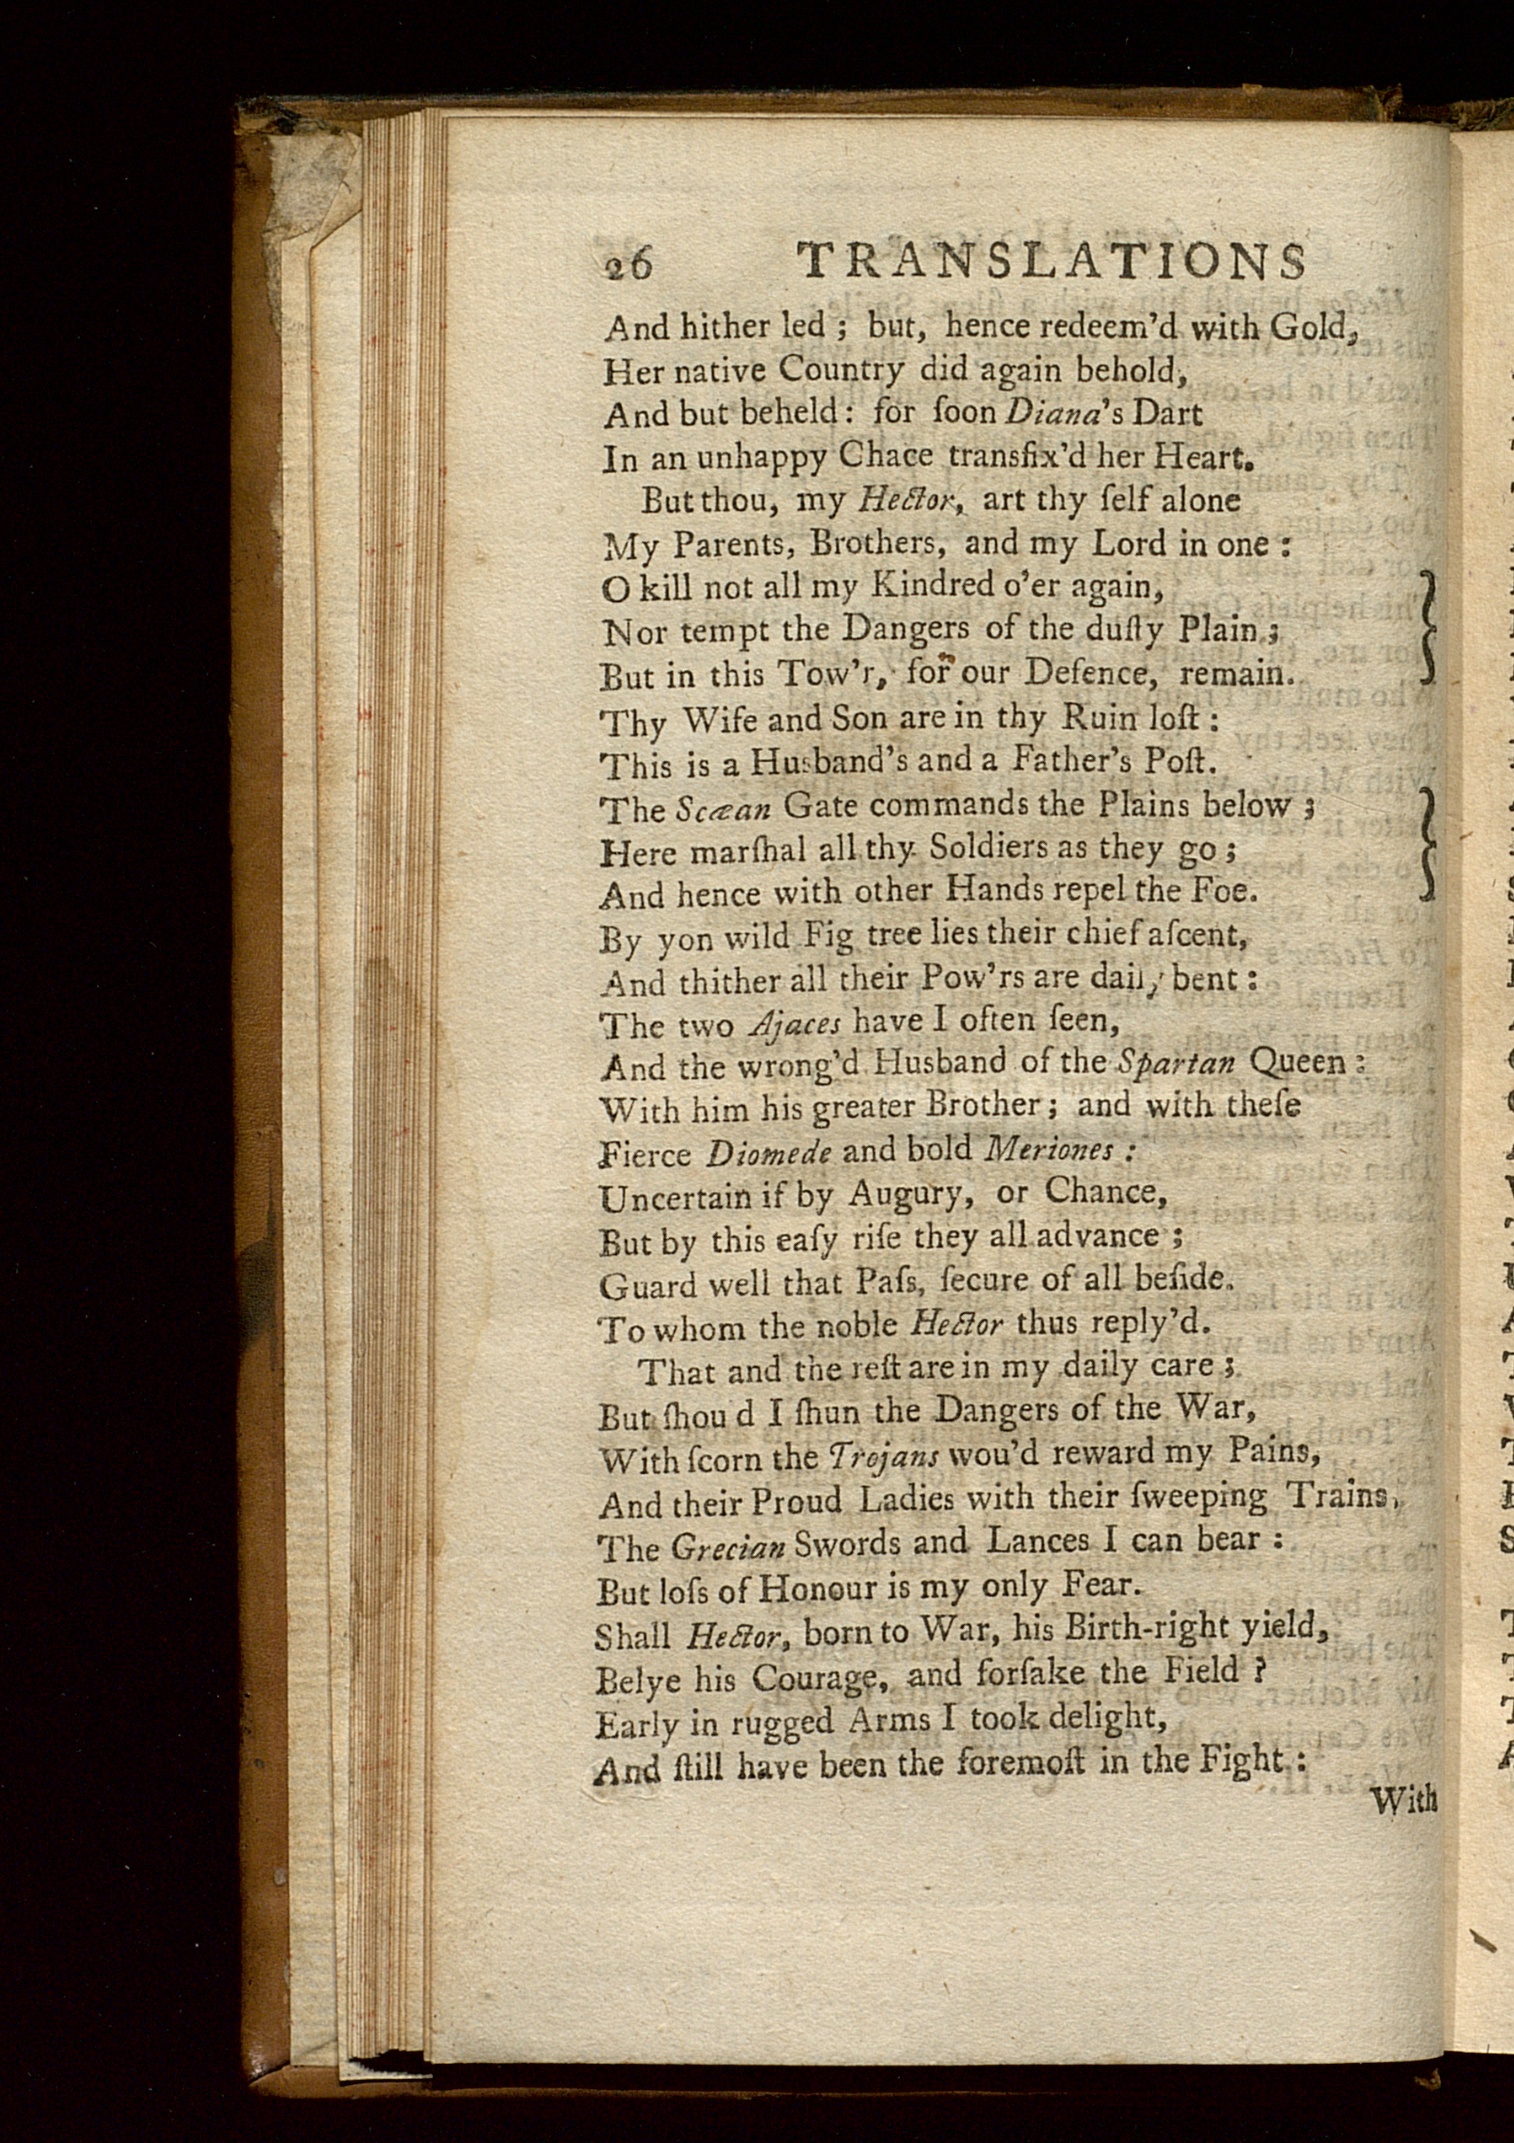 26 TRANSLATIONS
And hither led ; but, hence redeem'd with Gold,
Her native Country did again behold,
And but beheld: for ſoon Diana's Dart
In an unhappy Chace transfix'd her Heart.
But thou, my Hector, art thy ſelf alone
My Parents, Brothers, and my Lord in one :
O kill not all my Kindred o'er again,
Nor tempt the Dangers of the duſty Plain ;
But in this Tow'r, for our Defence, remain.
Thy Wife and Son are in thy Ruin loſt :
This is a Husband's and a Father's Poſt.
The Scæan Gate commands the Plains below ;
Here marſhal all thy Soldiers as they go ;
And hence with other Hands repel the Foe.
By yon wild Fig tree lies their chief aſcent,
And thither all their Pow'rs are daily bent :
The two Ajaces have I often ſeen,
And the wrong'd Husband of the Spartan Queen :
With him his greater Brother ; and with theſe
Fierce Diomede and bold Meriones :
Uncertain if by Augury, or Chance,
But by this eaſy riſe they all advance ;
Guard well that Paſs, ſecure of all beſide.
To whom the noble Hector thus reply'd.
That and the reſt are in my daily care ;
But ſhou d I ſhun the Dangers of the War,
With ſcorn the Trojans wou'd reward my Pains,
And their Proud Ladies with their ſweeping Trains,
The Grecian Swords and Lances I can bear :
But loſs of Honour is my only Fear.
Shall Hector, born to War, his Birth-right yield,
Belye his Courage, and forſake the Field ?
Early in rugged Arms I took delight,
And ſtill have been the foremoſt in the Fight :
With